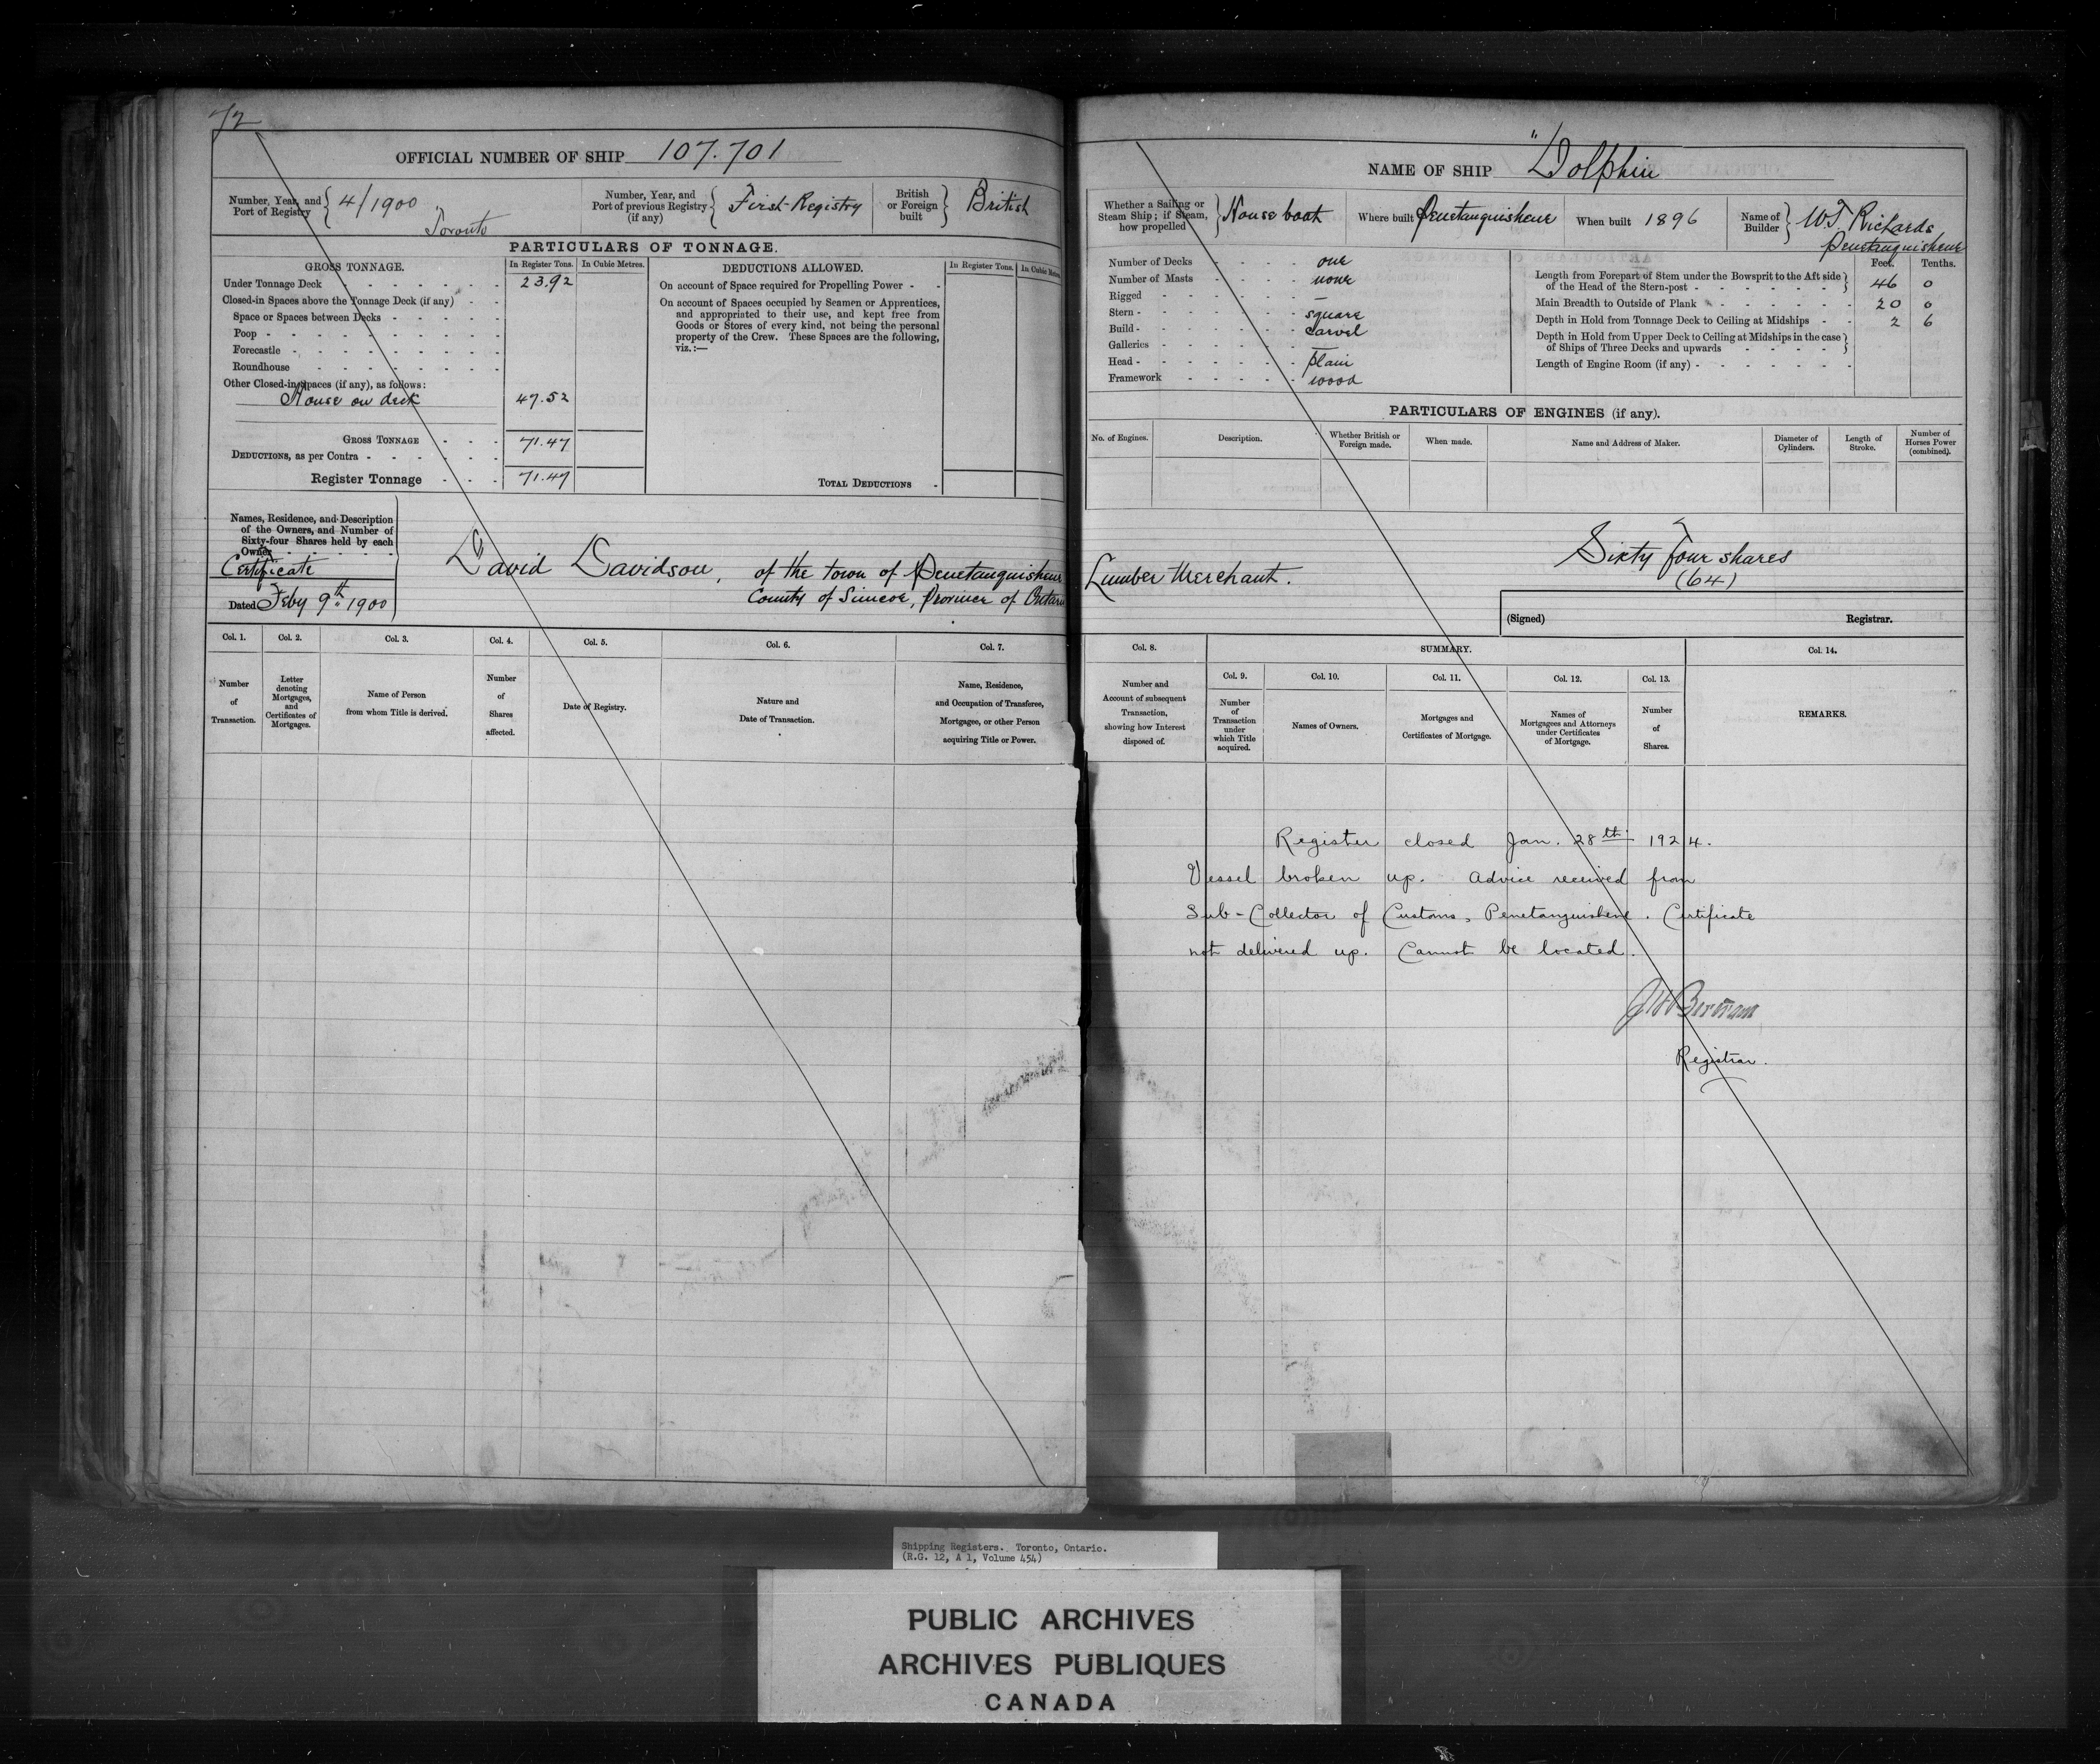 72
OFFICIAL NUMBER OF SHIP 107.701
Number, Year, and Port of Registry 4/1900 Toronto
Number, Year, and Port of previous Registry (if any) First Registry
British or Foreign built British
PARTICULARS OF TONNAGE.
GROSS TONNAGE. In Register Tons. In Cubic Metres.
Under Tonnage Deck 23.92
Closed-in Spaces above the Tonnage Deck (if any)
Space or Spaces between Decks
Poop
Forecastle
Roundhouse
Other Closed-in Spaces (if any), as follows:
House on deck 47.52
GROSS TONNAGE 71.47
DEDUCTIONS, as per Contra
Register Tonnage 71.47
DEDUCTIONS ALLOWED. In Register Tons. In Cubic Metres
On account of Space required for Propelling Power
On account of Spaces occupied by Seamen or Apprentices,
and appropriated to their use, and kept free from
Goods or Stores of every kind, not being the personal
property of the Crew. These Spaces are the following,
viz.:—
TOTAL DEDUCTIONS
Names, Residence, and Description
of the Owners, and Number of
Sixty-four Shares held by each
Owner
Certificate
Dated Feby 9th 1900
David Davidson, of the town of Penetanguishene
County of Simcoe, Province of Ontario
Col. 1. Col. 2. Col. 3. Col. 4. Col. 5. Col. 6. Col. 7.
Number of Transaction.
Letter denoting Mortgages, and Certificates of Mortgages.
Name of Person from whom Title is derived.
Number of Shares affected.
Date of Registry.
Nature and Date of Transaction.
Name, Residence, and Occupation of Transferee, Mortgagee, or other Person acquiring Title or Power.
NAME OF SHIP "Dolphin
Whether a Sailing or Steam Ship; if Steam, how propelled House boat
Where built Penetanguishene
When built 1896
Name of Builder W.J. Richards Penetanguishene
Number of Decks one
Number of Masts none
Rigged —
Stern square
Build carvel
Galleries —
Head plain
Framework wood
Feet. Tenths.
Length from Forepart of Stem under the Bowsprit to the Aft side
of the Head of the Stern-post 46 0
Main Breadth to Outside of Plank 20 0
Depth in Hold from Tonnage Deck to Ceiling at Midships 2 6
Depth in Hold from Upper Deck to Ceiling at Midships in the case
of Ships of Three Decks and upwards
Length of Engine Room (if any)
PARTICULARS OF ENGINES (if any).
No. of Engines. Description. Whether British or Foreign made. When made. Name and Address of Maker. Diameter of Cylinders. Length of Stroke. Number of Horses Power (combined).
Sixty four shares
(64)
Lumber Merchant.
(Signed) Registrar.
Col. 8. SUMMARY. Col. 14.
Col. 9. Col. 10. Col. 11. Col. 12. Col. 13.
Number and Account of subsequent Transaction, showing how Interest disposed of.
Number of Transaction under which Title acquired.
Names of Owners.
Mortgages and Certificates of Mortgage.
Names of Mortgagees and Attorneys under Certificates of Mortgage.
Number of Shares.
REMARKS.
Register closed Jan. 28th 1924.
Vessel broken up. Advice received from
Sub-Collector of Customs, Penetanguishene. Certificate
not delivered up. Cannot be located.
Bertram
Registrar.
Shipping Registers. Toronto, Ontario.
(R.G. 12, A 1, Volume 454)
PUBLIC ARCHIVES
ARCHIVES PUBLIQUES
CANADA